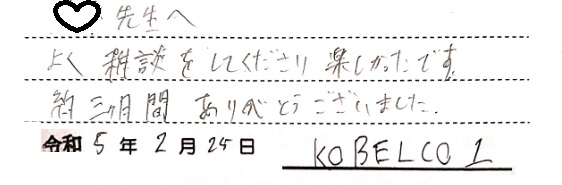 ♡ 先生へ
よく 雑談をしてくださり 楽しかったです。
約三ヶ月間 ありがとうございました.
令和 5 年 2 月 25 日 KOBELCO 1